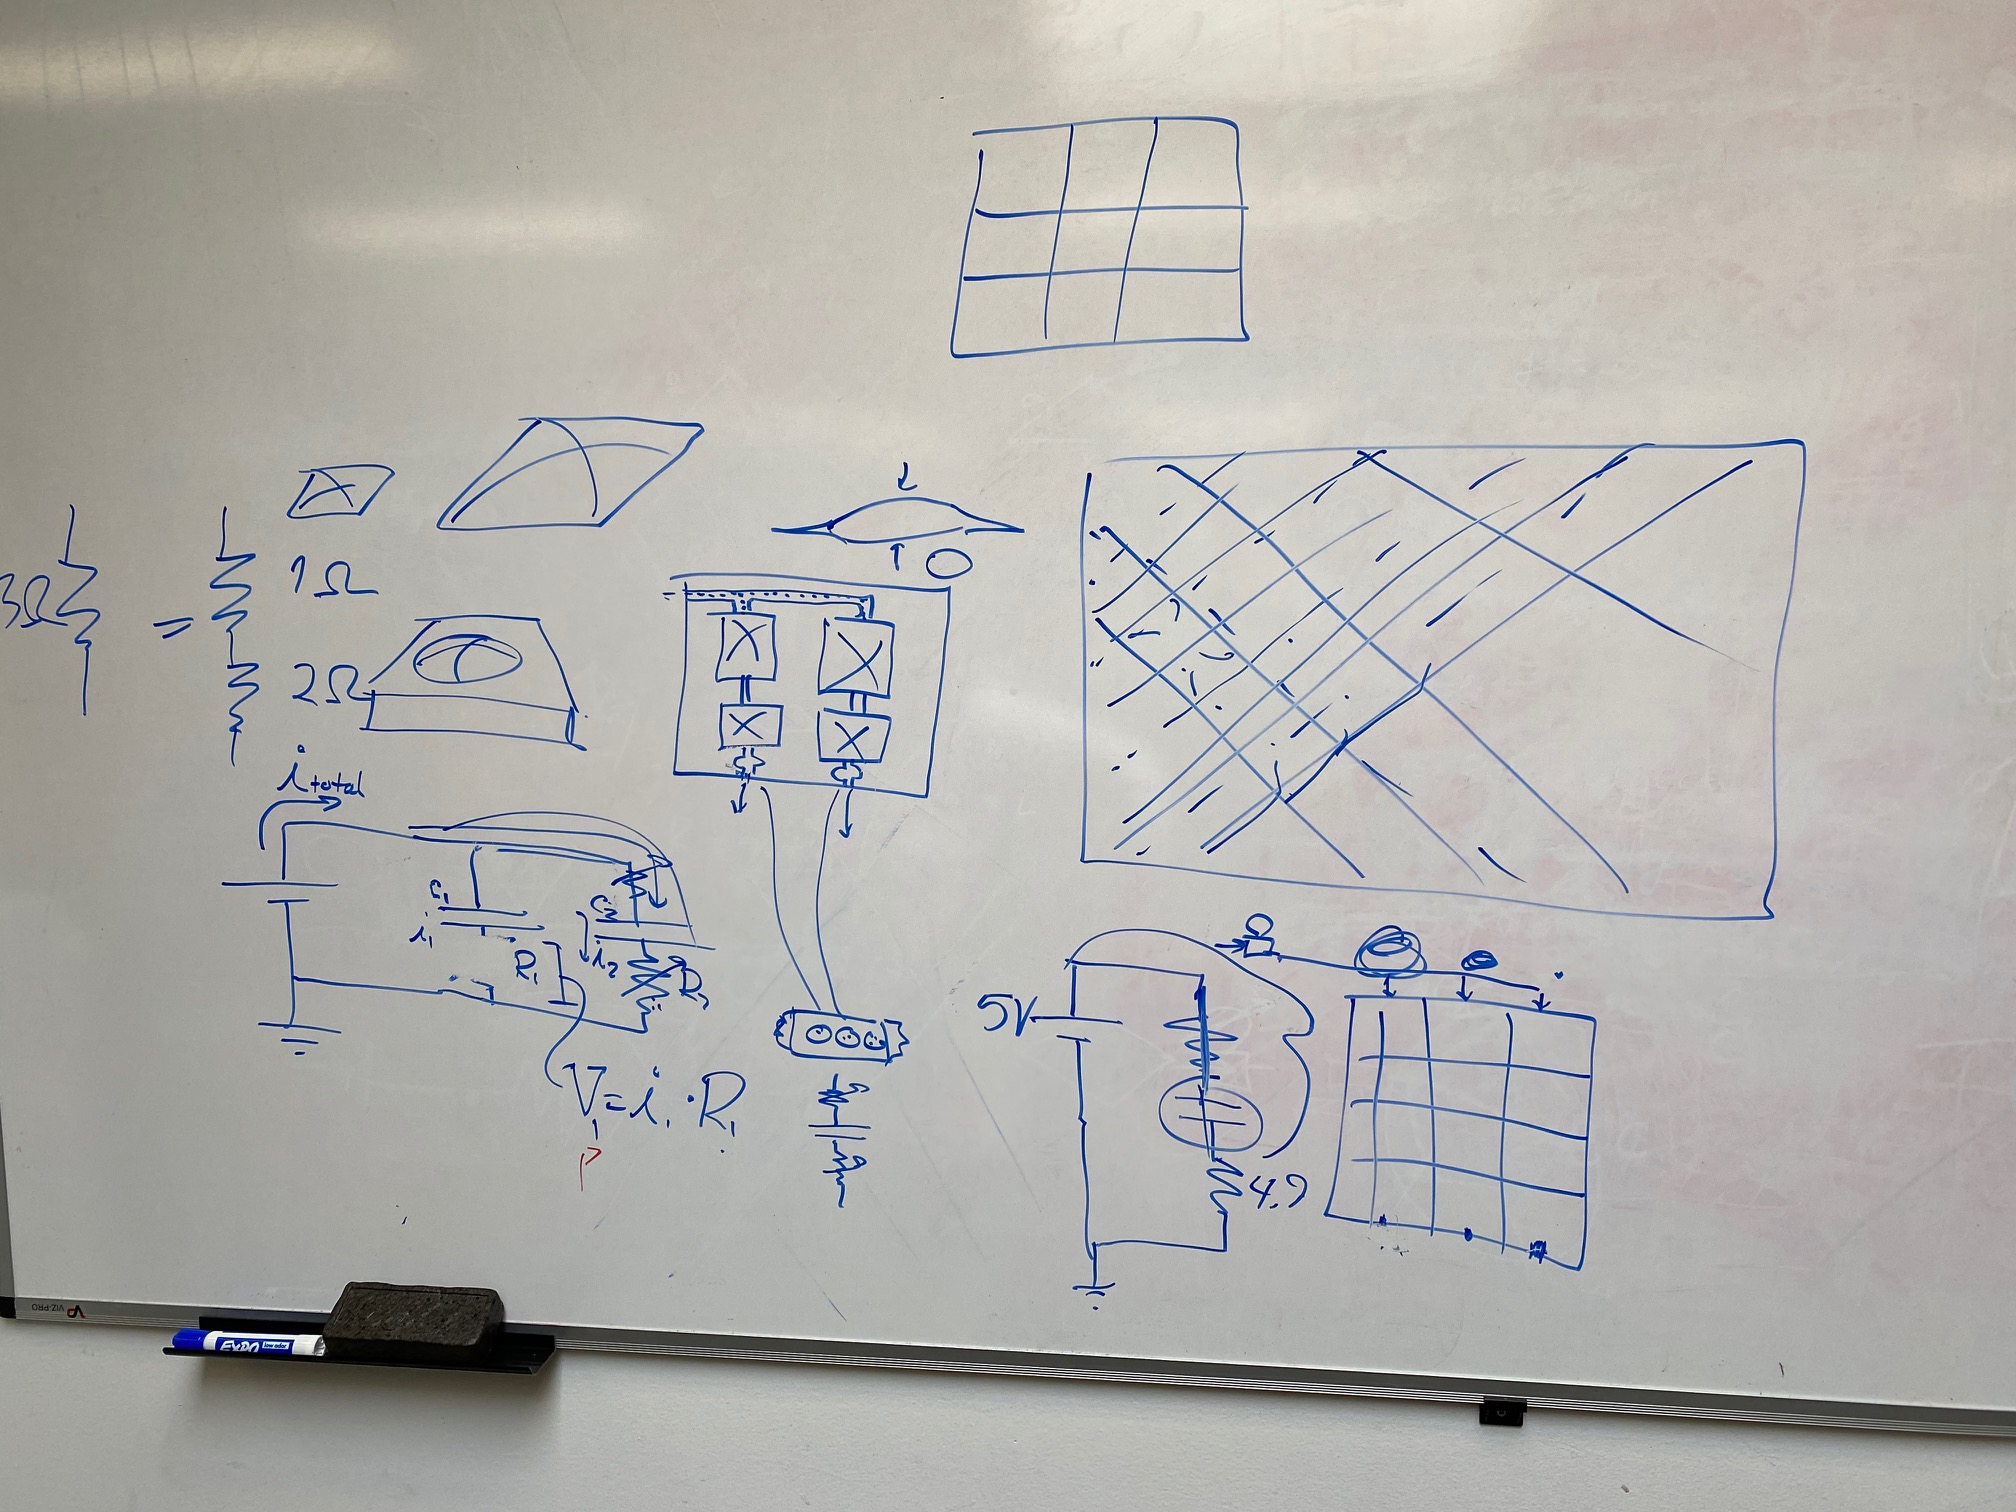 3Ω
=
1Ω
2Ω
i total
C₁
i₁
R₁
C₂
i₂
R₂
V₁ = i₁ · R₁
P
5V
4.9
VIZ-PRO
EXPO
low odor